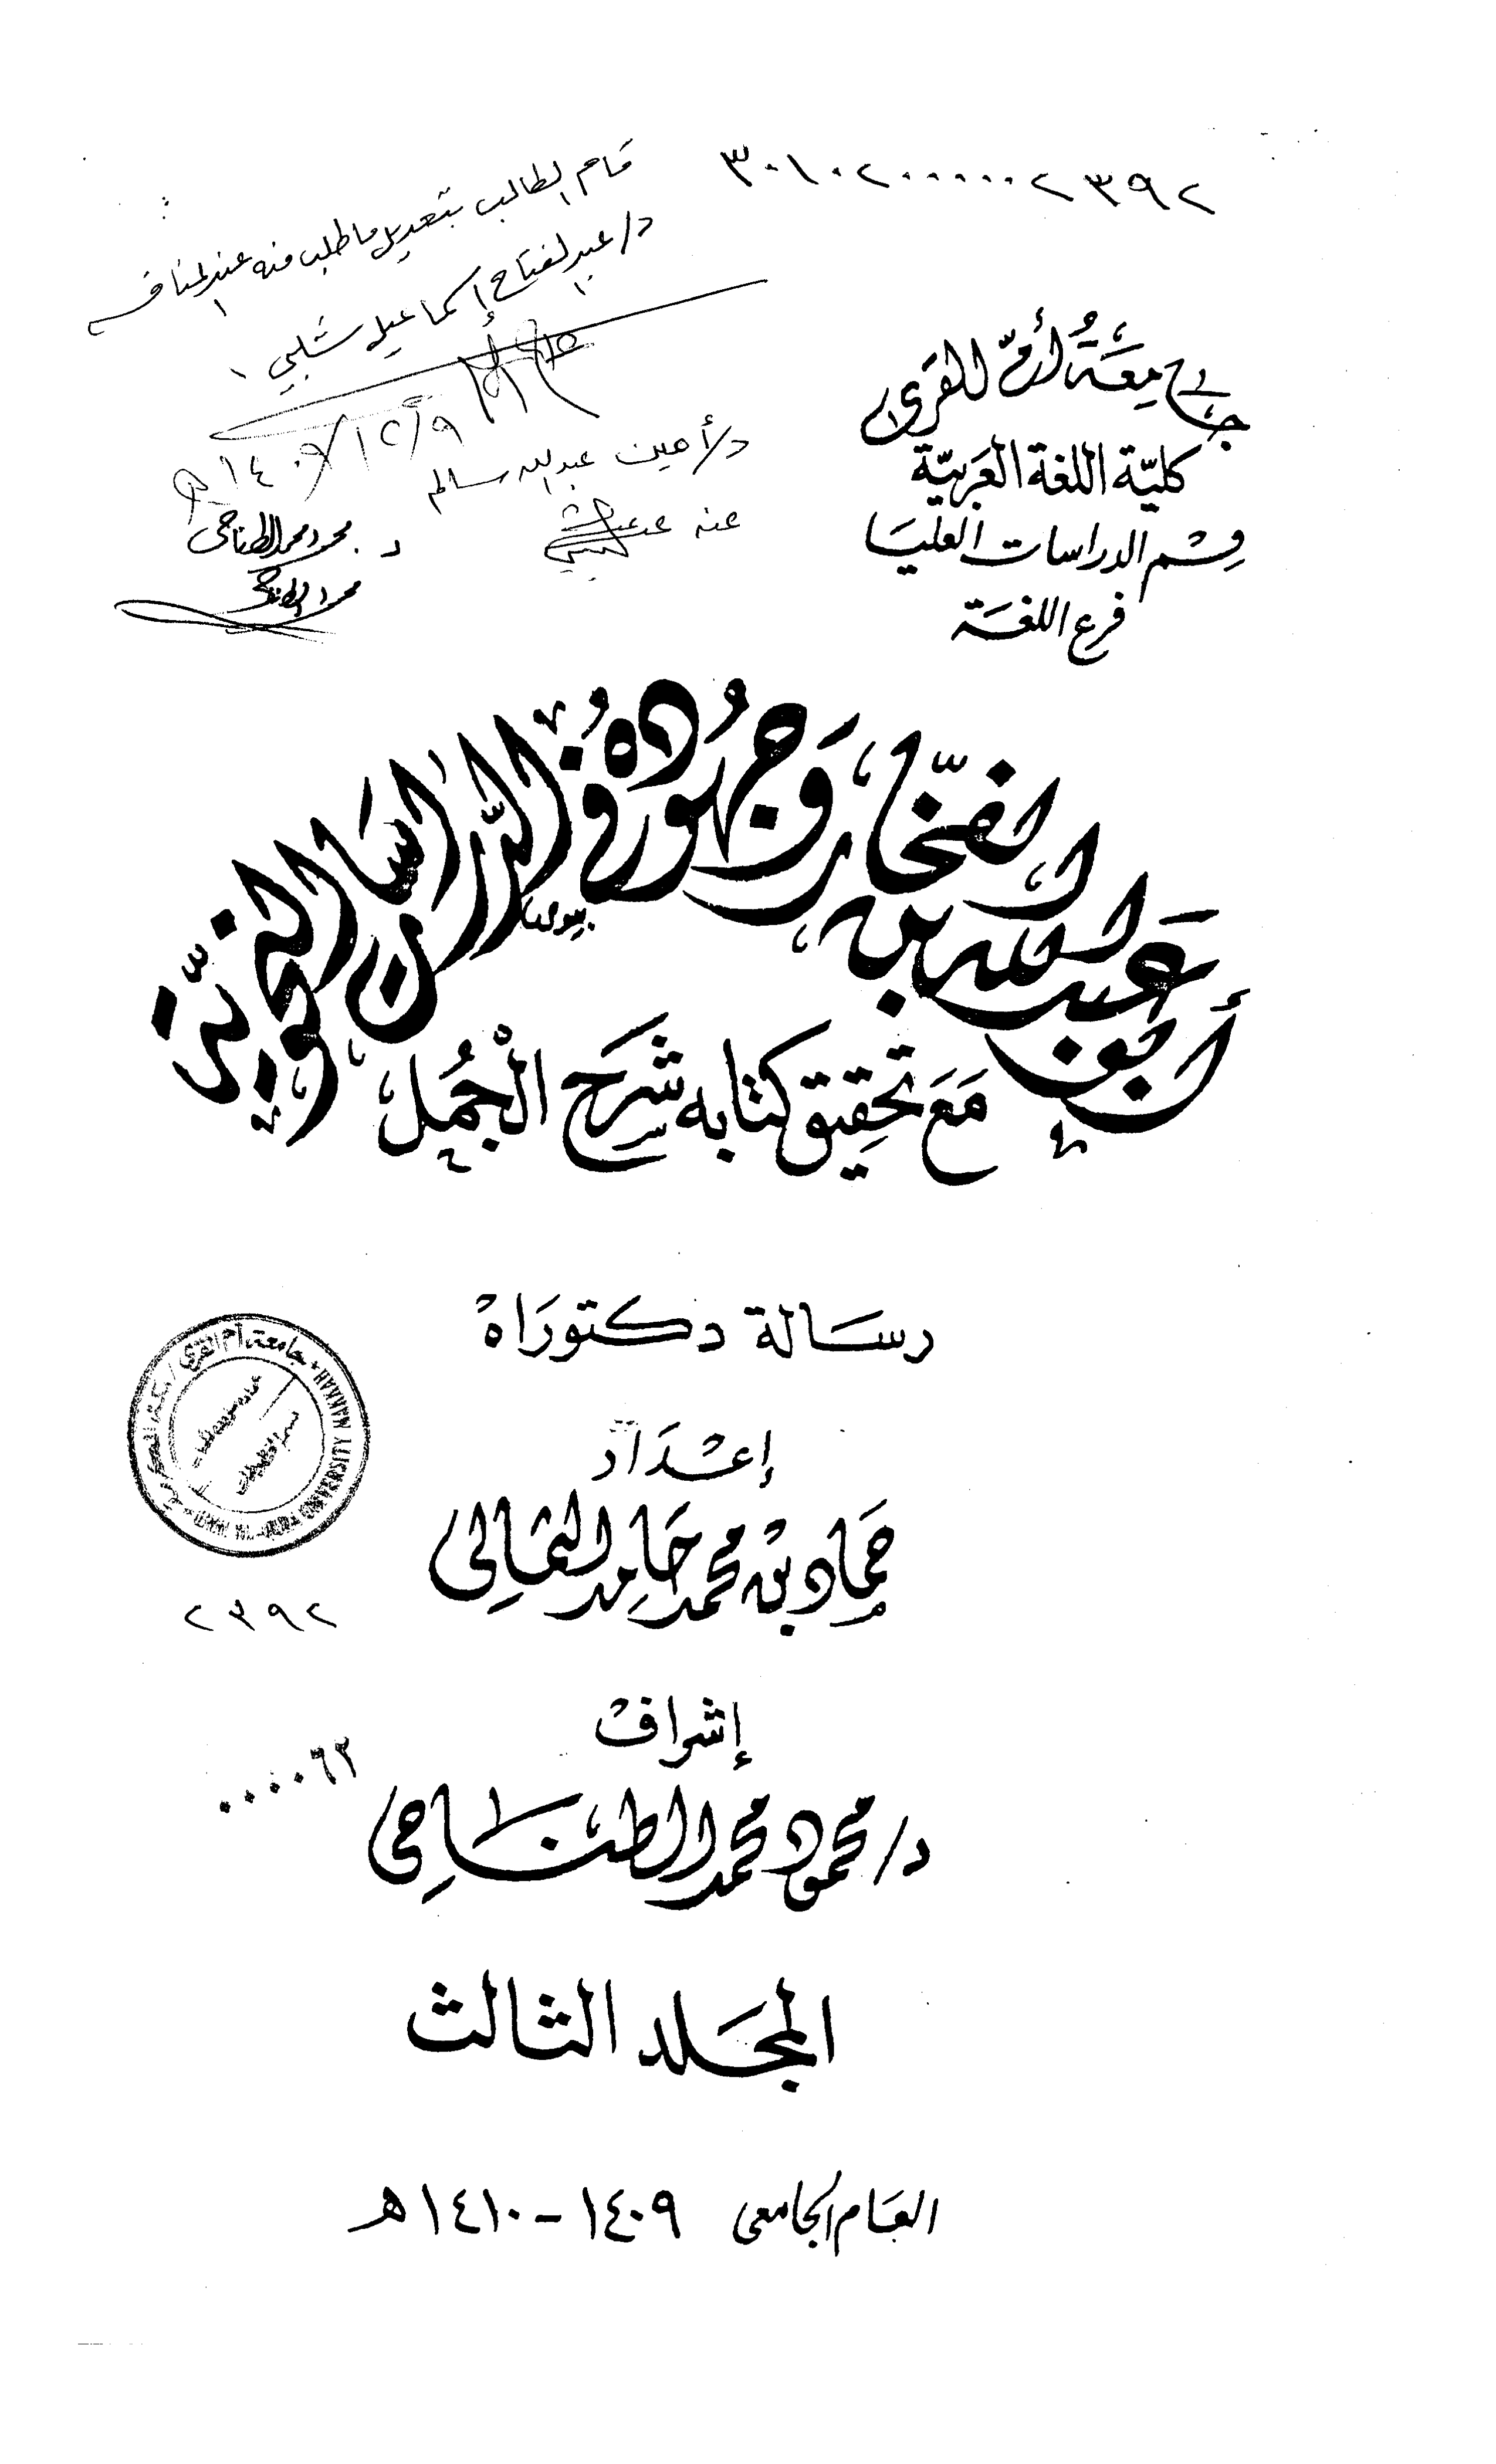 ٣٠١٠٢٠٠٠٠٠٢٣٩٢
قام الطالب بتعديل ما طلب منه عند المناقشة
د/عبدالفتاح إسماعيل شلبي
١٤٠٩/١٢/٩هـ
د/أمين عبدالله سالم
عنه
د. محمود محمد الطناحى
جَامِعَةُ أُمِّ القُرَى
كليّة اللغة العَربيّة
قسْم الدراسات العليَا
فرع اللغَة
أبو عبد الله بن الفخّار وَجُهُودُهُ في الدِّرَاسَاتِ النَّحْوِيَّة
مَعَ تحقِيق كتابه شَرح الْجُمَل
رسَالة دكتورَاهْ
إعْدَاد
حَمَّاد بنْ محمد حَامِد الثمَالِي
٢٣٩٢
جامعة أم القرى
إشرافْ
د/محمود محمد الطناحِى
٠٠٠٠٦٣
المجَلد الثالث
العَام الجَامعى ١٤٠٩-١٤١٠هـ